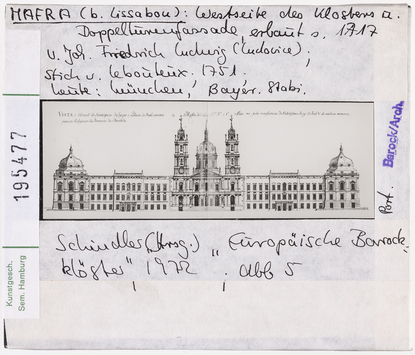 MAFRA (b. Lissabon): Westseite des Klosters m.
Doppelturmfassade, erbaut s. 1717
v. Joh. Friedrich Ludwig (Ludovice).
Stich v. Lebouteux. 1751.
heute: München, Bayer. Stabi.
195477
Barock/Arch.
Port.
Schindler, (Hrsg.) „Europäische Barock-
klöster" 1972, Abb 5
Kunstgesch.
Sem. Hamburg